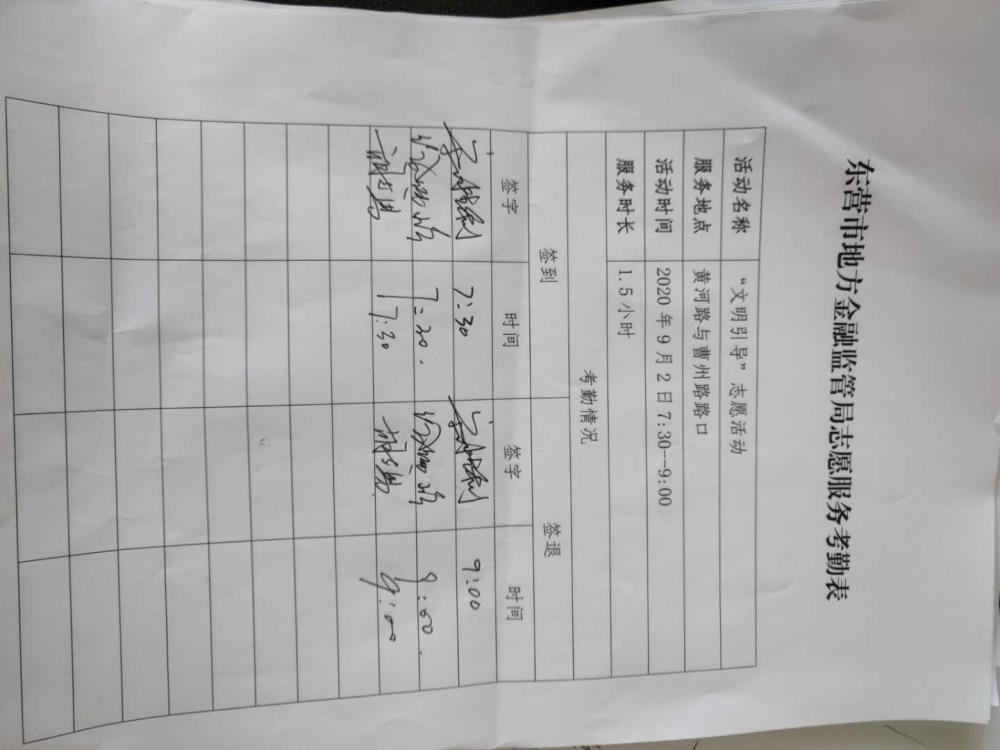 东营市地方金融监管局志愿服务考勤表
活动名称 “文明引导”志愿活动
服务地点 黄河路与曹州路路口
活动时间 2020年9月2日7:30--9:00
服务时长 1.5小时
考勤情况
签到 签退
签字 时间 签字 时间
7:30 9:00
7:30. 9:00.
17:30 9:00